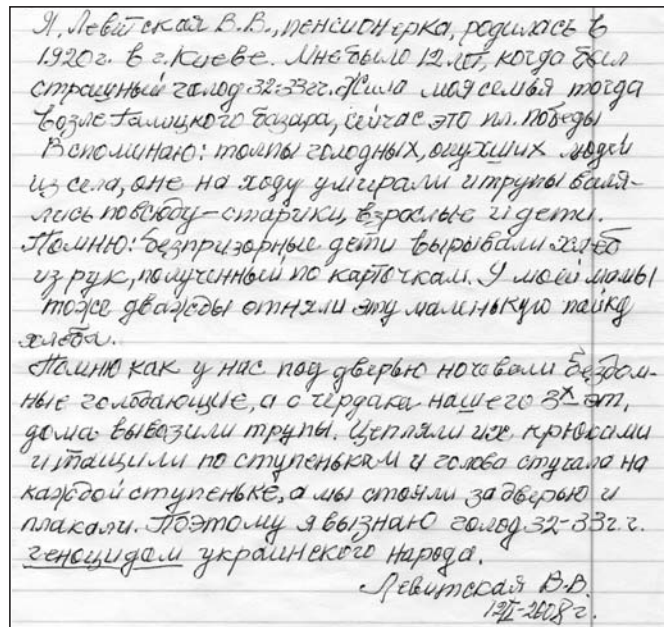 Я, Левитская В.В., пенсионерка, родилась в
1920г. в г.Киеве. Мне было 12 лет, когда был
страшный голод 32-33гг. Жила моя семья тогда
возле Галицкого базара, сейчас это пл. Победы
Вспоминаю: толпы голодных, опухших людей
из села, оне на ходу умирали и трупы валя-
лись повсюду - старики, взрослые и дети.
Помню: безпризорные дети вырывали хлеб
из рук, полученный по карточкам. У моей мамы
тоже дважды отняли эту маленькую пайку
хлеба.
Помню как у нас под дверью ночевали бездом-
ные голодающие, а с чердака нашего 3х эт.
дома вывозили трупы. Цепляли их крюками
и тащили по ступенькам и голова стучала на
каждой ступеньке, а мы стояли за дверью и
плакали. Поэтому я вызнаю голод 32-33г.г.
геноцидом украинского народа.
Левитская В.В.
2008г.